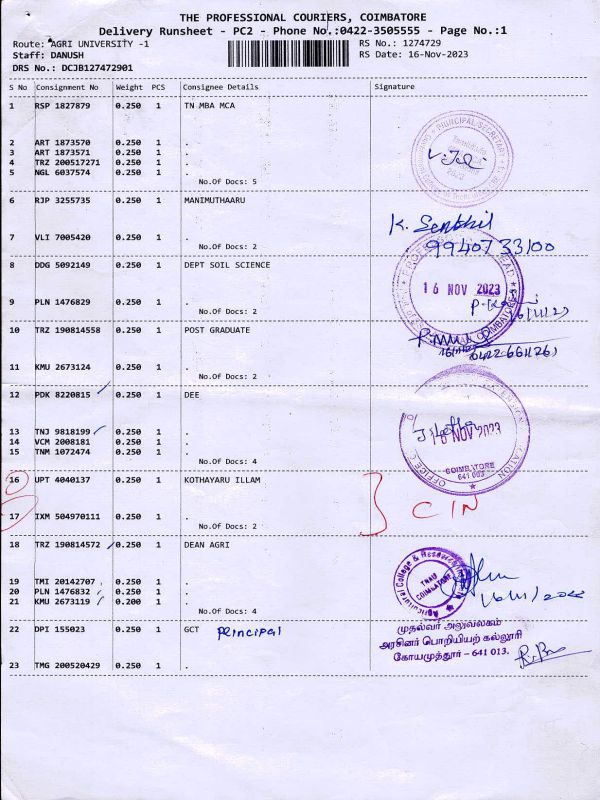 THE PROFESSIONAL COURIERS, COIMBATORE
Delivery Runsheet - PC2 - Phone No.:0422-3505555 - Page No.:1
Route: AGRI UNIVERSITY -1 RS No.: 1274729
Staff: DANUSH RS Date: 16-Nov-2023
DRS No.: DCJB127472901
S No Consignment No Weight PCS Consignee Details Signature
1 RSP 1827879 0.250 1 TN MBA MCA
2 ART 1873570 0.250 1 .
3 ART 1873571 0.250 1 .
4 TRZ 200517271 0.250 1 .
5 NGL 6037574 0.250 1 .
No.Of Docs: 5
6 RJP 3255735 0.250 1 MANIMUTHAARU
K. Senthil
7 VLI 7005420 0.250 1 .
No.Of Docs: 2
9940733100
8 DDG 5092149 0.250 1 DEPT SOIL SCIENCE
16 NOV 2023
9 PLN 1476829 0.250 1 .
No.Of Docs: 2
10 TRZ 190814558 0.250 1 POST GRADUATE
11 KMU 2673124 0.250 1 .
No.Of Docs: 2
12 PDK 8220815 0.250 1 DEE
13 TNJ 9818199 0.250 1 .
16 NOV 2023
14 VCM 2008181 0.250 1 .
15 TNM 1072474 0.250 1 .
No.Of Docs: 4
COIMBATORE
641 003
16 UPT 4040137 0.250 1 KOTHAYARU ILLAM
CIN
17 IXM 504970111 0.250 1 .
No.Of Docs: 2
18 TRZ 190814572 0.250 1 DEAN AGRI
Agricultural College & Research
TNAU
COIMBATORE
19 TMI 20142707 0.250 1 .
20 PLN 1476832 0.250 1 .
21 KMU 2673119 0.200 1 .
No.Of Docs: 4
22 DPI 155023 0.250 1 GCT Principal
முதல்வர் அலுவலகம்
அரசினர் பொறியியற் கல்லூரி
கோயமுத்தூர் – 641 013.
23 TMG 200520429 0.250 1 .